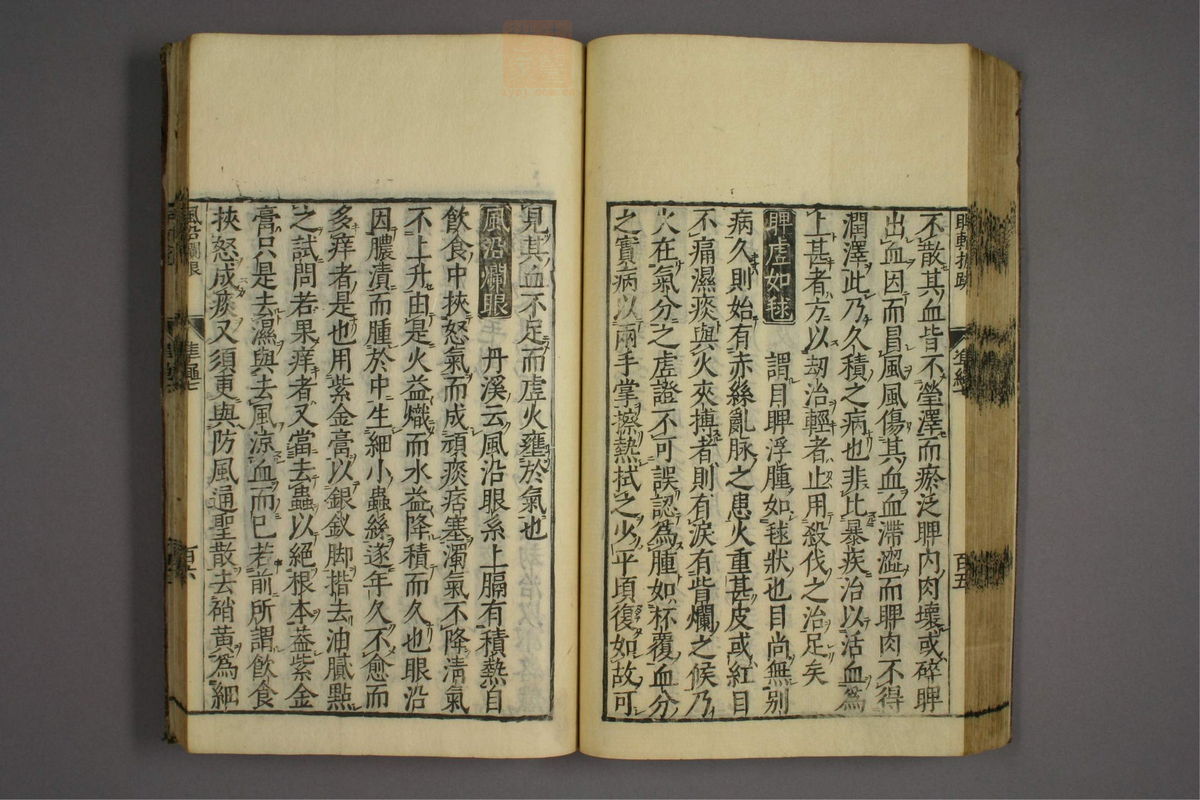 不散其血皆不瑩澤而瘀泛睥内肉壞或碎睥
出血因而冒風風傷其血血滯澀而睥肉不得
潤澤此乃久積之病也非比暴疾治以活血爲
上甚者方以刼治輕者止用殺伐之治足矣
睥虛如毬　謂目睥浮腫如毬狀也目尚無別
病久則始有赤絲亂脉之患火重甚皮或紅目
不痛濕痰與火夾搏者則有淚有眥爛之候乃
火在氣分之虛證不可誤認爲腫如杯覆血分
之實病以兩手掌擦熱拭之少平頃復如故可
百五
見其血不足而虛火壅於氣也
風沿爛眼　丹溪云風沿眼系上膈有積熱自
飲食中挾怒氣而成頑痰痞塞濁氣不降淸氣
不上升由是火益熾而水益降積而久也眼沿
因膿漬而腫於中生細小蟲絲遂年久不愈而
多痒者是也用紫金膏以銀釵脚揩去油膩點
之試問若果痒者又當去蟲以絕根本葢紫金
膏只是去濕與去風涼血而已若前所謂飲食
挾怒成痰又須更與防風通聖散去硝黃爲細
風沿爛眼
百六